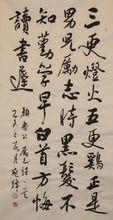 三更燈火五更鷄正是
男兒勵志時黑髮不
知勤學早白首方悔
讀書遲
顏魯公